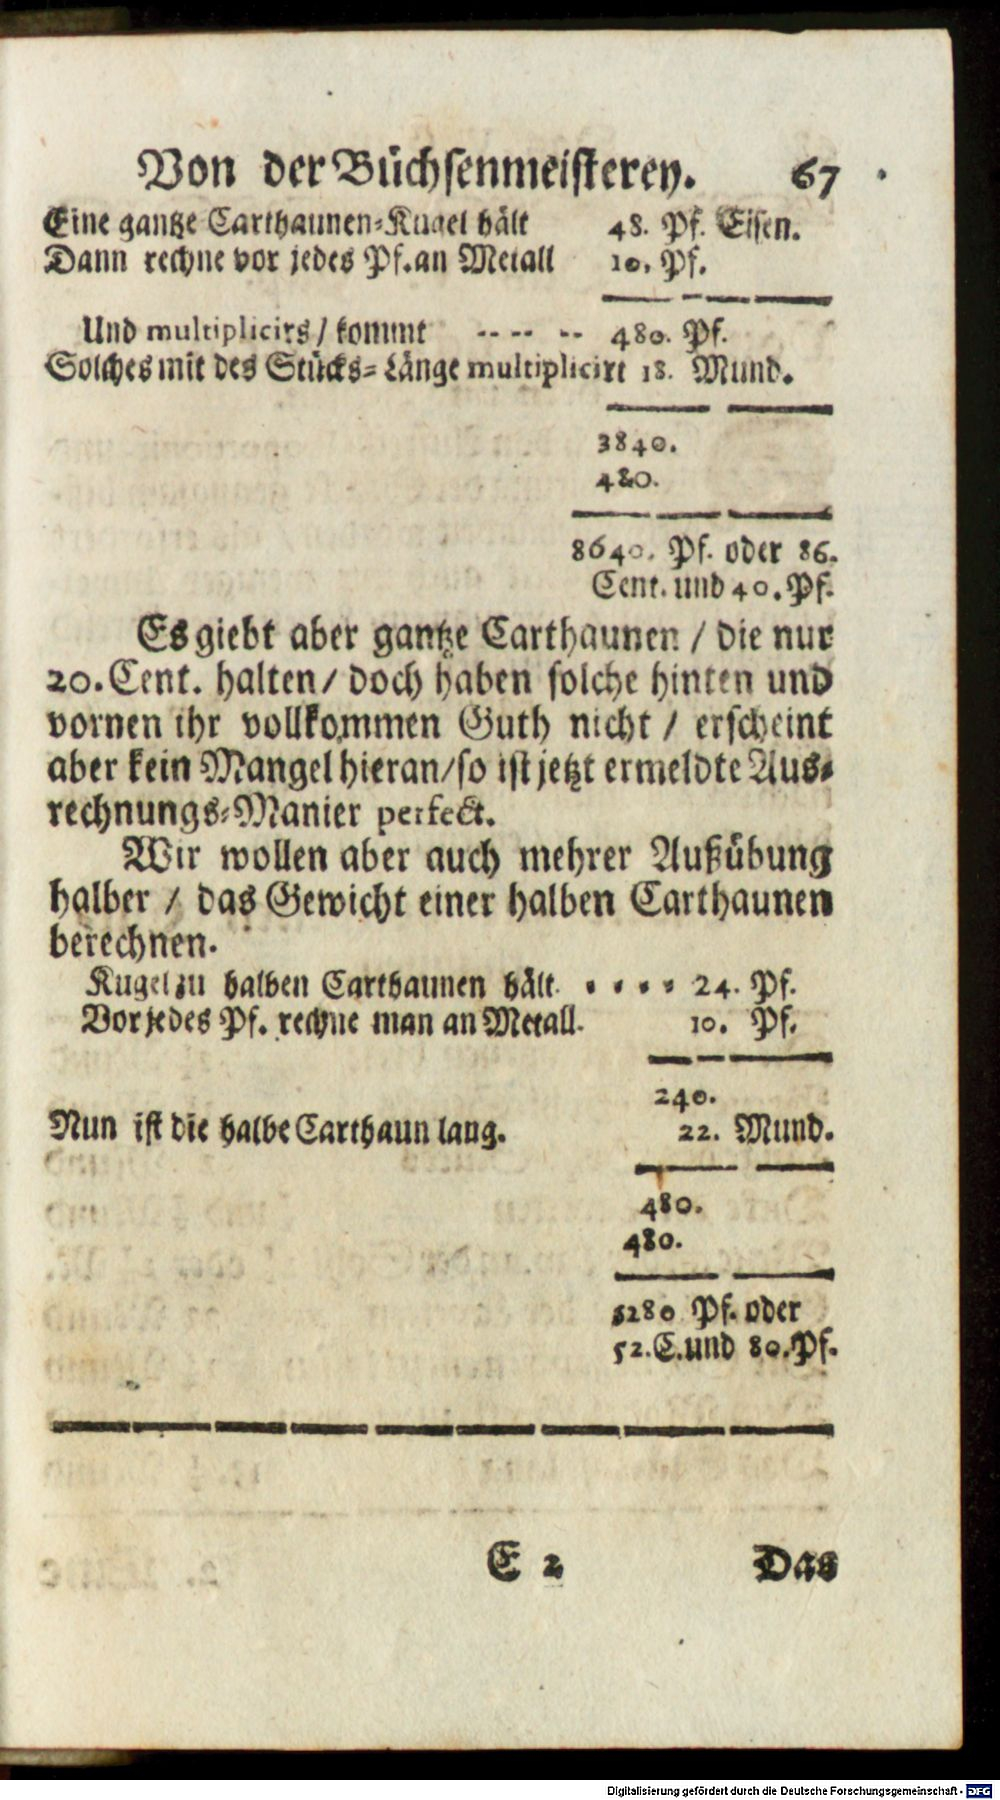 Von der Büchsenmeisterey. 67
Eine gantze Carthaunen-Kugel hält 48. Pf. Eisen.
Dann rechne vor jedes Pf. an Metall 10. Pf.
Und multiplicirs / kommt -- -- -- 480. Pf.
Solches mit des Stücks-Länge multiplicirt 18. Mund.
3840.
480.
8640. Pf. oder 86.
Cent. und 40. Pf.
Es giebt aber gantze Carthaunen / die nur
20. Cent. halten / doch haben solche hinten und
vornen ihr vollkommen Guth nicht / erscheint
aber kein Mangel hieran / so ist jetzt ermeldte Aus-
rechnungs-Manier perfect.
Wir wollen aber auch mehrer Außübung
halber / das Gewicht einer halben Carthaunen
berechnen.
Kugel zu halben Carthaunen hält. - - - - 24. Pf.
Vor jedes Pf. rechne man an Metall. 10. Pf.
240.
Nun ist die halbe Carthaun lang. 22. Mund.
480.
480.
5280 Pf. oder
52. C. und 80. Pf.
E 2 Das
Digitalisierung gefördert durch die Deutsche Forschungsgemeinschaft - DFG